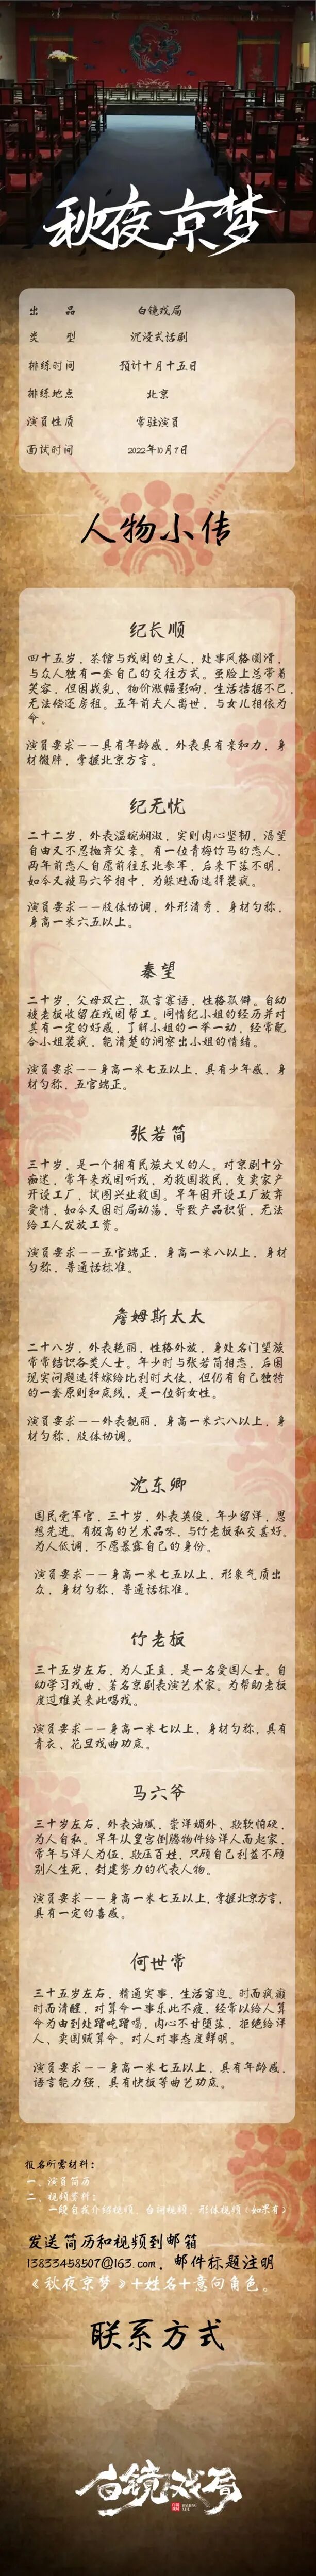 秋夜京梦
出品 白镜戏局
类型 沉浸式话剧
排练时间 预计十月十五日
排练地点 北京
演员性质 常驻演员
面试时间 2022年10月7日
人物小传
纪长顺
四十五岁，茶馆与戏园的主人，处事风格圆滑，
与众人独有一套自己的交往方式。虽脸上总带着
笑容，但因战乱、物价涨幅影响，生活拮据不已，
无法偿还房租。五年前夫人离世，与女儿相依为
命。
演员要求——具有年龄感，外表具有亲和力，身
材微胖，掌握北京方言。
纪无忧
二十二岁，外表温婉娴淑，实则内心坚韧，渴望
自由又不忍抛弃父亲。有一位青梅竹马的恋人，
两年前恋人自愿前往东北参军，后来下落不明，
如今又被马六爷相中，为躲避而选择装疯。
演员要求——肢体协调，外形清秀，身材匀称，
身高一米六五以上。
秦望
二十岁，父母双亡，孤言寡语，性格孤僻。自幼
被老板收留在戏园帮工。同情纪小姐的经历并对
其有一定的好感，了解小姐的一举一动，经常配
合小姐装疯，能清楚的洞察出小姐的情绪。
演员要求——身高一米七五以上，具有少年感，身
材匀称，五官端正。
张若简
三十岁，是一个拥有民族大义的人。对京剧十分
痴迷，常年来戏园听戏，为救国救民，变卖家产
开设工厂，试图兴业救国。早年因开设工厂放弃
爱情，如今又因时局动荡，导致产品积货，无法
给工人发放工资。
演员要求——五官端正，身高一米八以上，身材
匀称，普通话标准。
詹姆斯太太
二十八岁，外表艳丽，性格外放，身处名门望族
常常结识各类人士。年少时与张若简相恋，后因
现实问题选择嫁给比利时大使，但仍有自己独特
的一套原则和底线，是一位新女性。
演员要求——外表靓丽，身高一米六八以上，身
材匀称，肢体协调。
沈东卿
国民党军官，三十岁，外表英俊，年少留洋，思
想先进。有极高的艺术品味，与竹老板私交甚好。
为人低调，不愿暴露自己的身份。
演员要求——身高一米七五以上，形象气质出
众，身材匀称，普通话标准。
竹老板
三十五岁左右，为人正直，是一名爱国人士。自
幼学习戏曲，著名京剧表演艺术家。为帮助老板
度过难关来此唱戏。
演员要求——身高一米七以上，身材匀称，具有
青衣、花旦戏曲功底。
马六爷
三十岁左右，外表油腻，崇洋媚外、欺软怕硬，
为人自私。早年从皇宫倒腾物件给洋人而起家，
常年与洋人为伍，欺压百姓，只顾自己利益不顾
别人生死，封建势力的代表人物。
演员要求——身高一米七五以上，掌握北京方言，
具有一定的喜感。
何世常
三十五岁左右，精通实事，生活窘迫。时而疯癫
时而清醒，对算命一事乐此不疲，经常以给人算
命为由到处蹭吃蹭喝，内心不甘堕落，拒绝给洋
人、卖国贼算命。对人对事态度鲜明。
演员要求——身高一米七五以上，具有年龄感，
语言能力强，具有快板等曲艺功底。
报名所需材料：
一、演员简历
二、视频资料：
一段自我介绍视频、台词视频、形体视频（如果有）
发送简历和视频到邮箱
13833458507@163.com，邮件标题注明
《秋夜京梦》+姓名+意向角色。
联系方式
白镜戏局